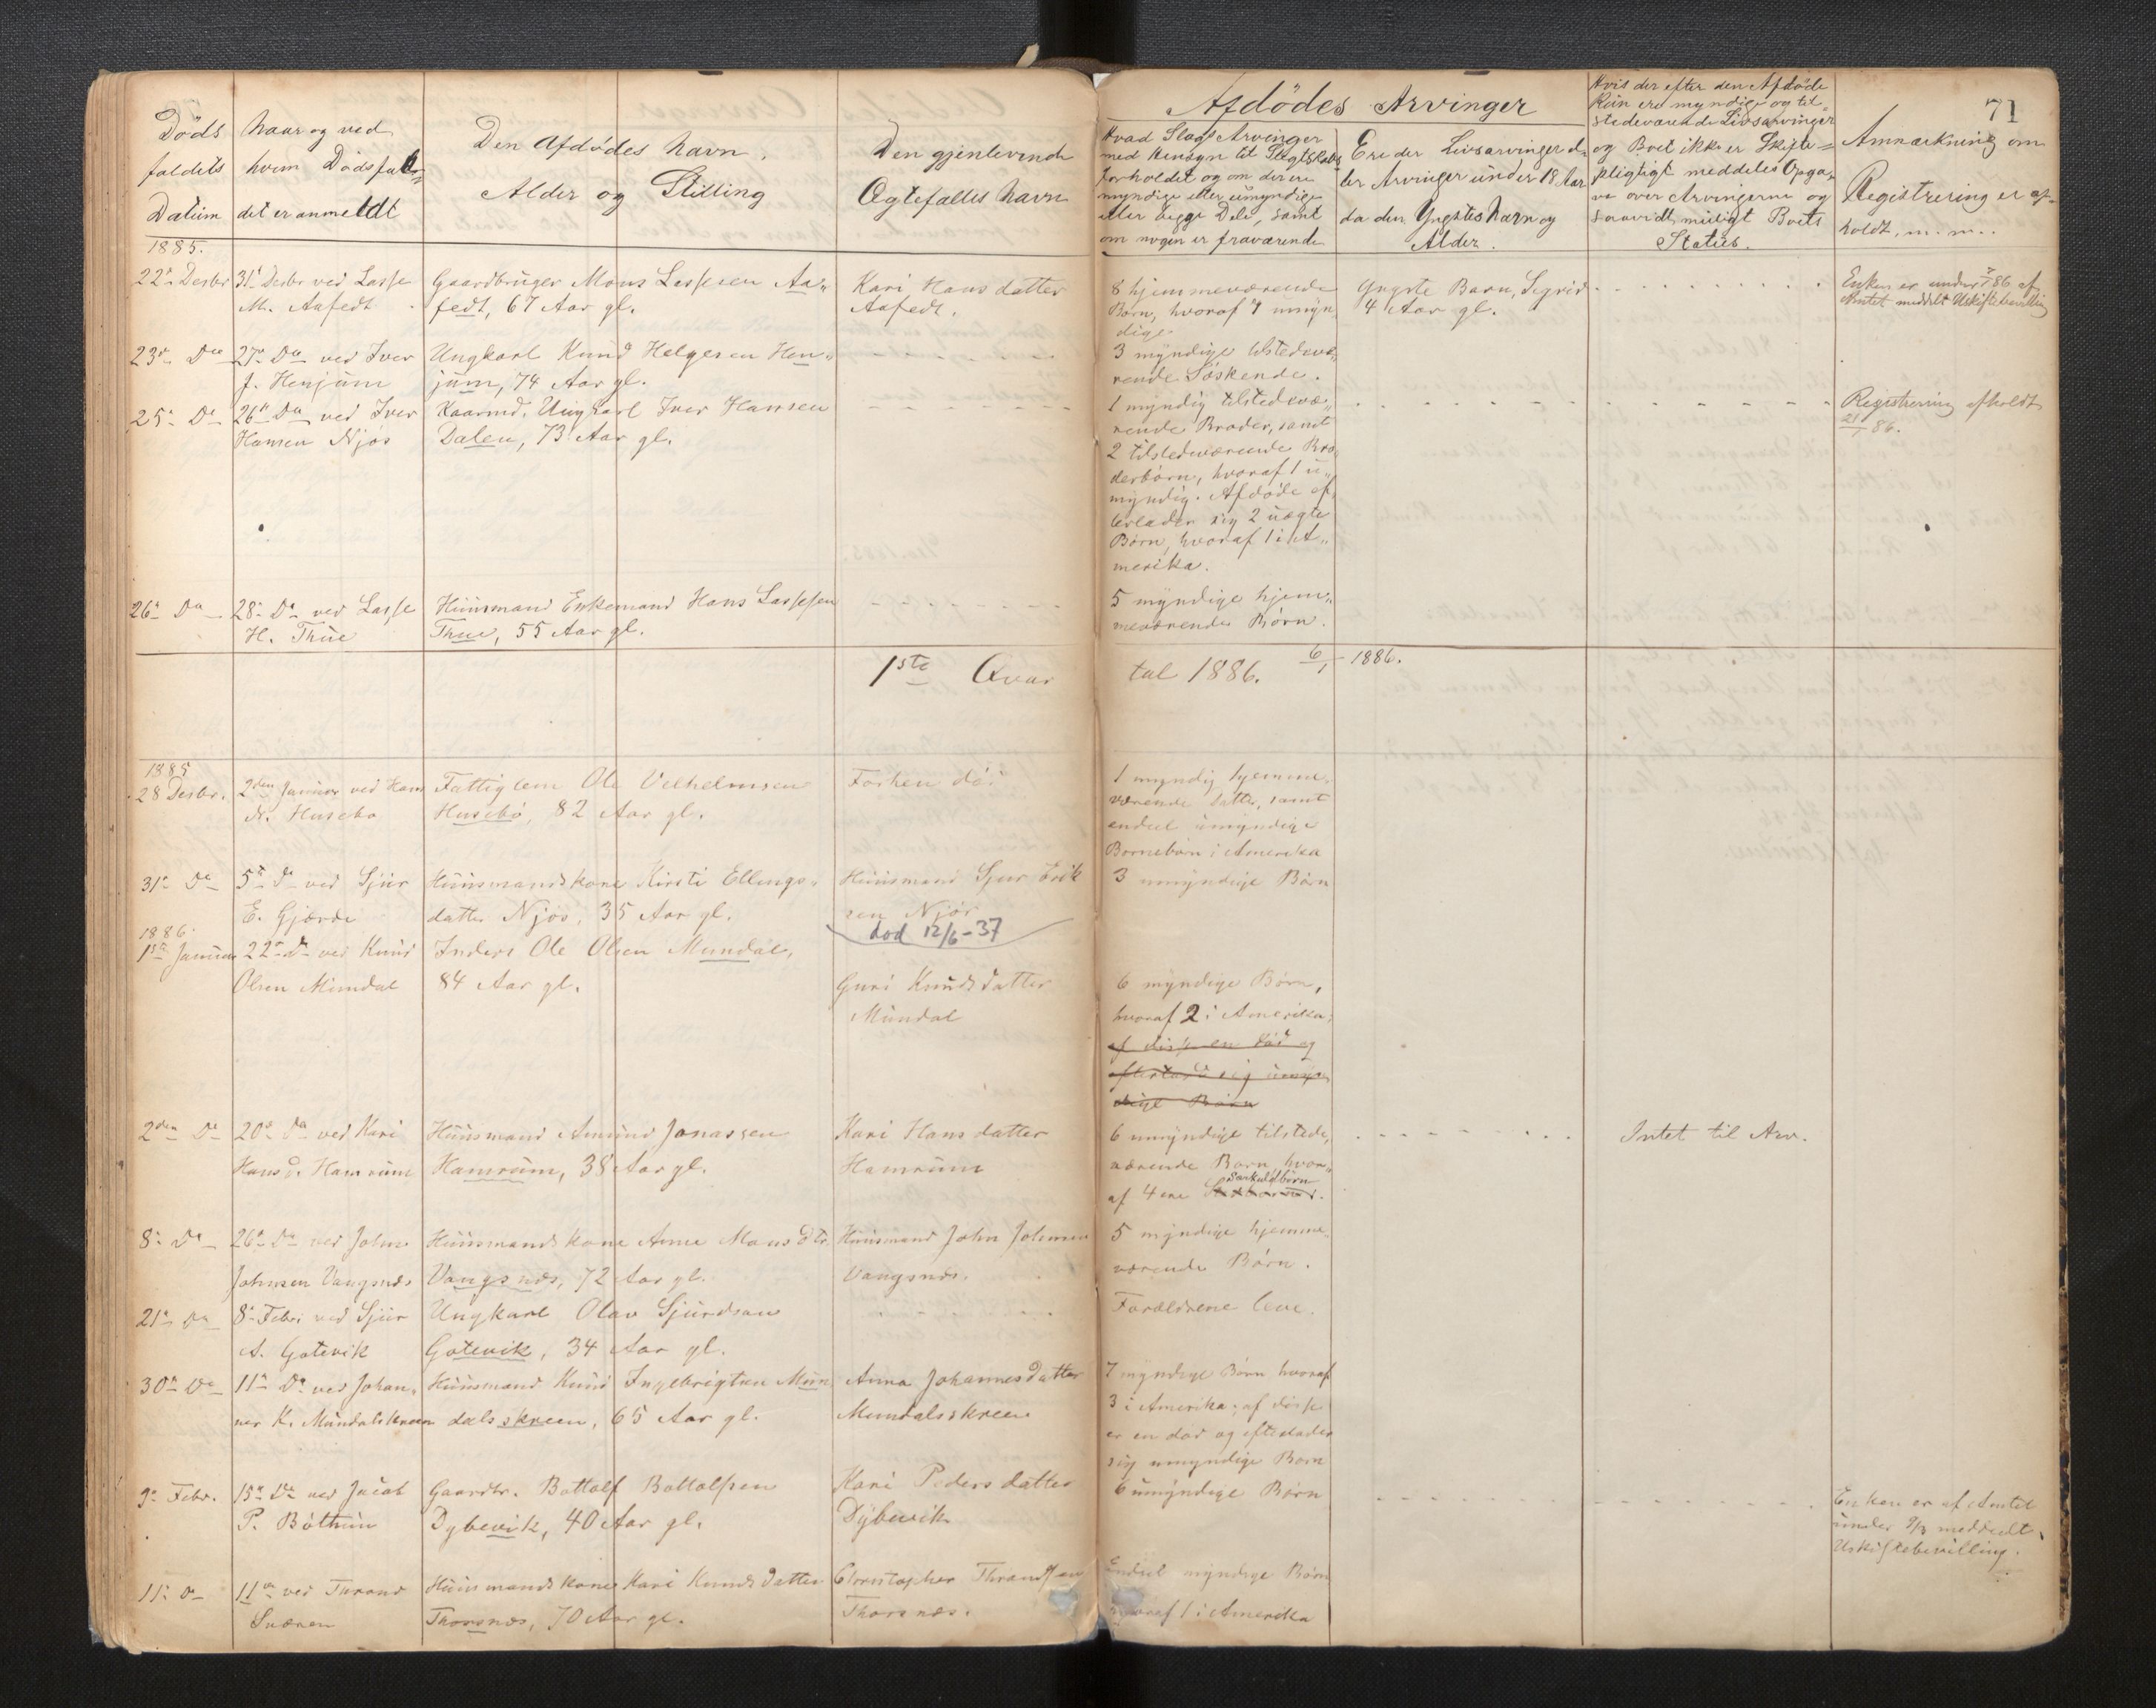 71
Döds
faldets
Datum
Naar og ved
hvem Dödsfal=
det er anmeldt
Den Afdödes Navn,
Alder og Stilling
Den gjenlevende
Ægtefælles Navn
Afdödes Arvinger
Hvad Slags Arvinger
med Hensyn til Slægtskabs
forholdet og om der ere
myndige eller umyndige
eller begge Dele, samt
om nogen er fraværende
Ere der Livsarvinger el-
ler Arvinger under 18 Aar
da den Yngstes Navn og
Alder.
Hvis der efter den Afdöde
kun ere myndige og til=
stedeværende Livsarvinger
og Boet ikke er Skifte=
pligtigt meddeles Opga-
ve over Arvingerne og
saavidt muligt Boets
Status.
Anmærkning om
Registrering er af-
holdt, m. m.
1885.
22de Desbr
31te Desbr ved Lasse
M. Aafedt
Gaardbruger Mons Lassesen Aa„
fedt, 67 Aar gl.
Kari Hansdatter
Aafedt.
8 hjemmeværende
Børn, hvoraf 7 umyn„
dige
Yngste Barn, Sigrid
4 Aar gl.
Enken er under 7/1 86 af
Amtet meddelt Uskiftebevilling
23de Do
27de Do ved Iver
J. Henjum
Ungkarl Knud Helgesen Hen„
jum, 74 Aar gl.
3 myndige tilstedevæ„
rende Søskende.
25de Do
26de Do ved Iver
Hansen Njøs
Kaarmd. Ungkarl Iver Hansen
Dalen, 73 Aar gl.
1 myndig tilstedevæ„
rende Broder, samt
2 tilstedeværende Bro„
derbørn, hvoraf 1 u„
myndig. Afdøde ef„
terlader sig 2 uægte
Børn, hvoraf 1 i A„
merika.
Registrering afholdt
21/1 86.
26de Do
28de Do ved Lasse
H. Thue
Huusmand Enkemand Hans Lassesen
Thue, 55 Aar gl.
5 myndige hjem„
meværende Børn.
1ste Qvar
tal 1886. 6/1 1886.
1885
28 Desbr.
2den Januar ved Hans
N. Husebø
Fattiglem Ole Velhelmsen
Husebø, 82 Aar gl.
Forhen død
1 myndig hjemme„
værende Datter, samt
endeel umyndige
Børnebørn i Amerika
31te Do
5te Do ved Sjur
E. Gjærde
Huusmandskone Kirsti Ellings„
datter Njøs, 35 Aar gl.
Huusmand Sjur Erik
sen Njøs
død 12/6-37
3 umyndige Børn
1886.
1ste Januar
22de Do ved Knud
Olsen Mundal
Inderst Ole Olsen Mundal,
84 Aar gl.
Guri Knudsdatter
Mundal
6 myndige Børn,
hvoraf 2 i Amerika;
af disse en død og
efterlad sig umyn„
dige Børn
2den Do
20de Do ved Kari
Hansd. Hamrum
Huusmand Amund Jonassen
Hamrum, 38 Aar gl.
Kari Hansdatter
Hamrum
6 umyndige tilstede„
værende Børn, hvor„
af 4 ere Særkuldbørn.
Intet til Arv.
8de Do
26de Do ved John
Johnsen Vangsnæs
Huusmandskone Anne Monsdtr.
Vangsnæs, 72 Aar gl.
Huusmand John Johnsen
Vangsnæs.
5 myndige hjemme„
værende Børn.
21de Do
8de Febr. ved Sjur
A. Gotevik
Ungkarl Olav Sjurdsen
Gotevik, 34 Aar gl.
Forældrene leve.
30te Do
11te Do ved Johan„
nes K. Mundalskreen
Huusmand Knud Ingebrigtsen Mun„
dalsskreen, 65 Aar gl.
Anna Johannesdatter
Mundalsskreen
7 myndige Børn hvoraf
3 i Amerika; af disse
er en død og efterlader
sig umyndige Børn
9de Febr.
15de Do ved Jacob
P. Bøthun
Gaardbr. Bottolf Bottolfsen
Dybevik, 40 Aar gl.
Kari Pedersdatter
Dybevik
6 umyndige Børn
Enken er af Amtet
under 9/3 meddelt
Uskiftebevilling.
11te Do
11te ved Thrond
Sværen
Huusmandskone Kari Knudsdatter
Thorsnæs, 70 Aar gl.
Christopher Throndsen
Thorsnæs.
Endeel myndige Børn
hvoraf 1 i Amerika